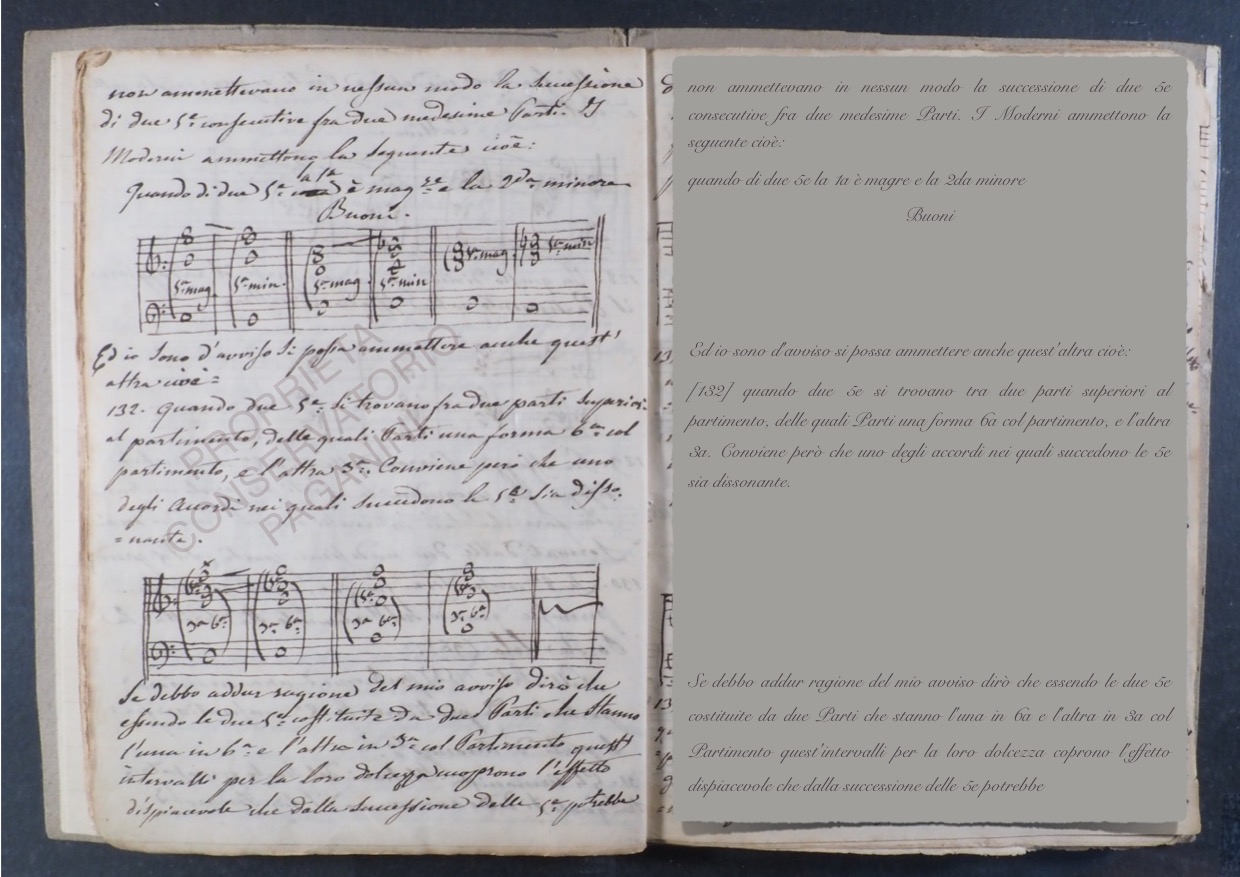 non ammettevano in nessun modo la successione
di due 5e consecutive fra due medesime Parti. I
Moderni ammettono la seguente cioè:
a 1a
Quando di due 5e è mag re e la 2da minore
Buoni.
5a mag 5a min. 5a mag 5a min 5a mag 5a min
Ed io sono d'avviso si possa ammettere anche quest'
altra cioè =
132. Quando due 5e si trovano fra due parti superiori
al partimento, delle quali Parti una forma 6a col
partimento, e l'altra 3a. Conviene però che uno
degli accordi nei quali succedono le 5e sia disso-
=nante.
3a 6a 3a 6a 3a 6a 3a 6a
Se debbo addur ragione del mio avviso dirò che
essendo le due 5e costituite da due Parti che stanno
l'una in 6a e l'altra in 3a col Partimento quest'
intervalli per la loro dolcezza coprono l'effetto
dispiacevole che dalla successione delle 5e potrebbe
PROPRIETÀ
CONSERVATORIO
PAGANINI
non ammettevano in nessun modo la successione di due 5e
consecutive fra due medesime Parti. I Moderni ammettono la
seguente cioè:
quando di due 5e la 1a è magre e la 2da minore
Buoni
Ed io sono d'avviso si possa ammettere anche quest'altra cioè:
[132] quando due 5e si trovano tra due parti superiori al
partimento, delle quali Parti una forma 6a col partimento, e l'altra
3a. Conviene però che uno degli accordi nei quali succedono le 5e
sia dissonante.
Se debbo addur ragione del mio avviso dirò che essendo le due 5e
costituite da due Parti che stanno l'una in 6a e l'altra in 3a col
Partimento quest'intervalli per la loro dolcezza coprono l'effetto
dispiacevole che dalla successione delle 5e potrebbe